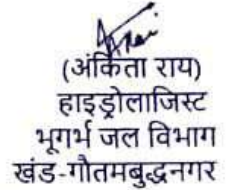 (अंकिता राय)
हाइड्रोलाजिस्ट
भूगर्भ जल विभाग
खंड-गौतमबुद्धनगर